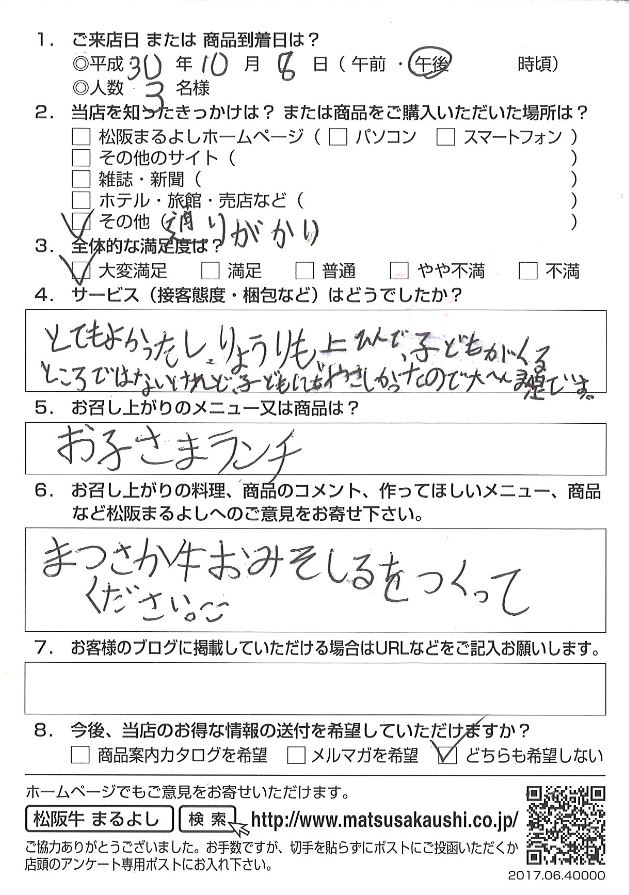 1. ご来店日 または 商品到着日は？
◎平成 30 年 10 月 8 日（ 午前 ・ 午後 時頃）
◎人数 3 名様
2. 当店を知ったきっかけは？ または商品をご購入いただいた場所は？
□ 松阪まるよしホームページ（ □ パソコン □ スマートフォン ）
□ その他のサイト（ ）
□ 雑誌・新聞（ ）
□ ホテル・旅館・売店など（ ）
☑ その他（通りがかり ）
3. 全体的な満足度は？
☑ 大変満足 □ 満足 □ 普通 □ やや不満 □ 不満
4. サービス（接客態度・梱包など）はどうでしたか？
とてもよかったし、りょうりも上ひんで、子どもがくる
ところではないけれど、子どもにもやさしかったので大へん満足です。
5. お召し上がりのメニュー又は商品は？
お子さまランチ
6. お召し上がりの料理、商品のコメント、作ってほしいメニュー、商品
など松阪まるよしへのご意見をお寄せ下さい。
まつさか牛おみそしるをつくって
ください。
7. お客様のブログに掲載していただける場合はURLなどをご記入お願いします。
8. 今後、当店のお得な情報の送付を希望していただけますか？
□ 商品案内カタログを希望 □ メルマガを希望 ☑ どちらも希望しない
ホームページでもご意見をお寄せいただけます。
松阪牛 まるよし 検索 http://www.matsusakaushi.co.jp/
ご協力ありがとうございました。お手数ですが、切手を貼らずにポストにご投函いただくか
店頭のアンケート専用ポストにお入れ下さい。
2017.06.40000